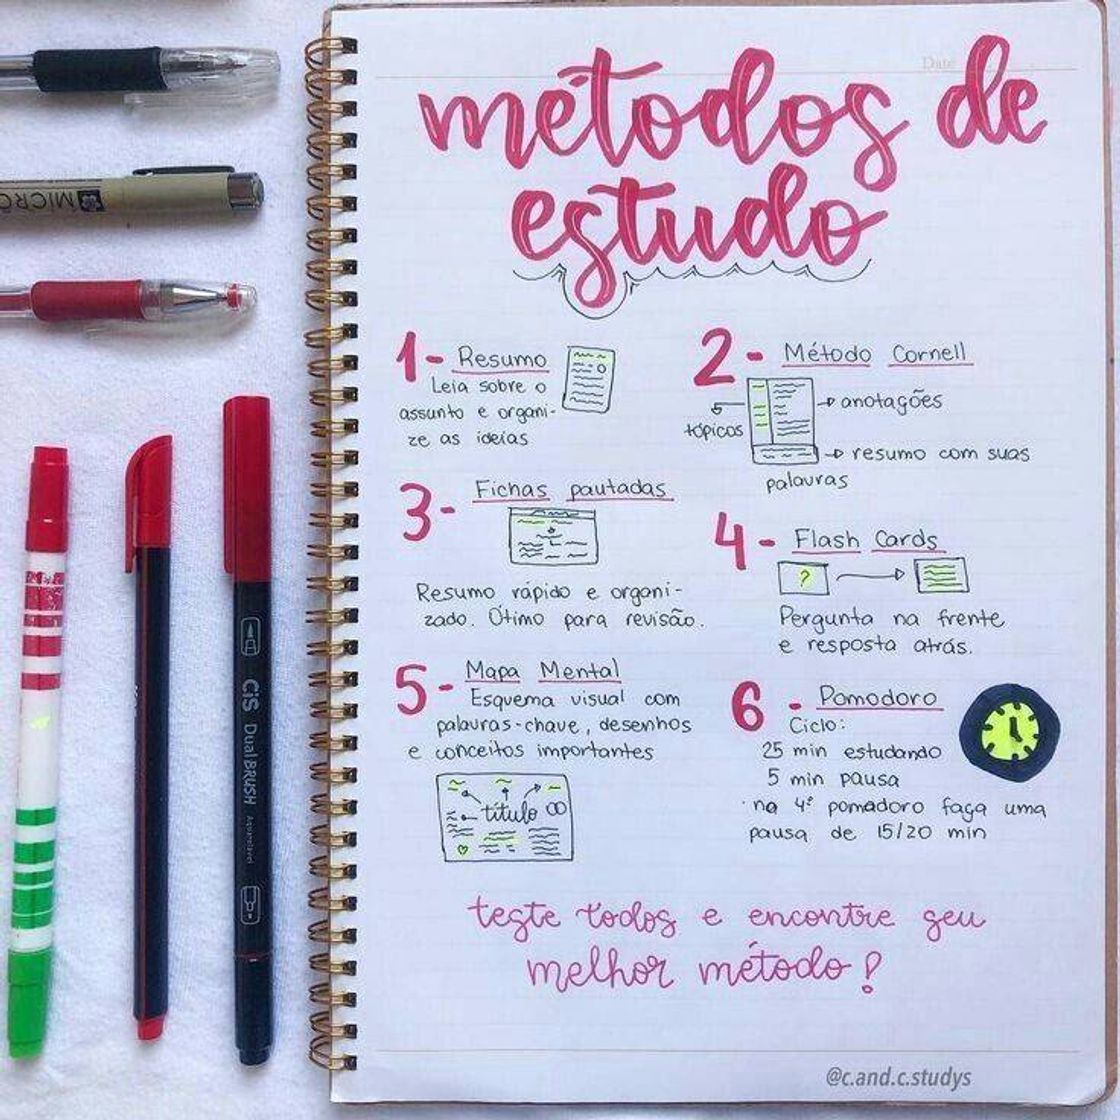 Date
métodos de
estudo
1- Resumo
Leia sobre o
assunto e organi-
ze as ideias
2- Método Cornell
anotações
tópicos
resumo com suas
palavras
3- Fichas pautadas
Resumo rápido e organi-
zado. Ótimo para revisão.
4- Flash Cards
?
Pergunta na frente
e resposta atrás.
5- Mapa Mental
Esquema visual com
palavras-chave, desenhos
e conceitos importantes
título
6- Pomodoro
Ciclo:
25 min estudando
5 min pausa
na 4º pomadoro faça uma
pausa de 15/20 min
teste todos e encontre seu
melhor método!
@c.and.c.studys
MICRO
CiS Dual BRUSH Aquarelável